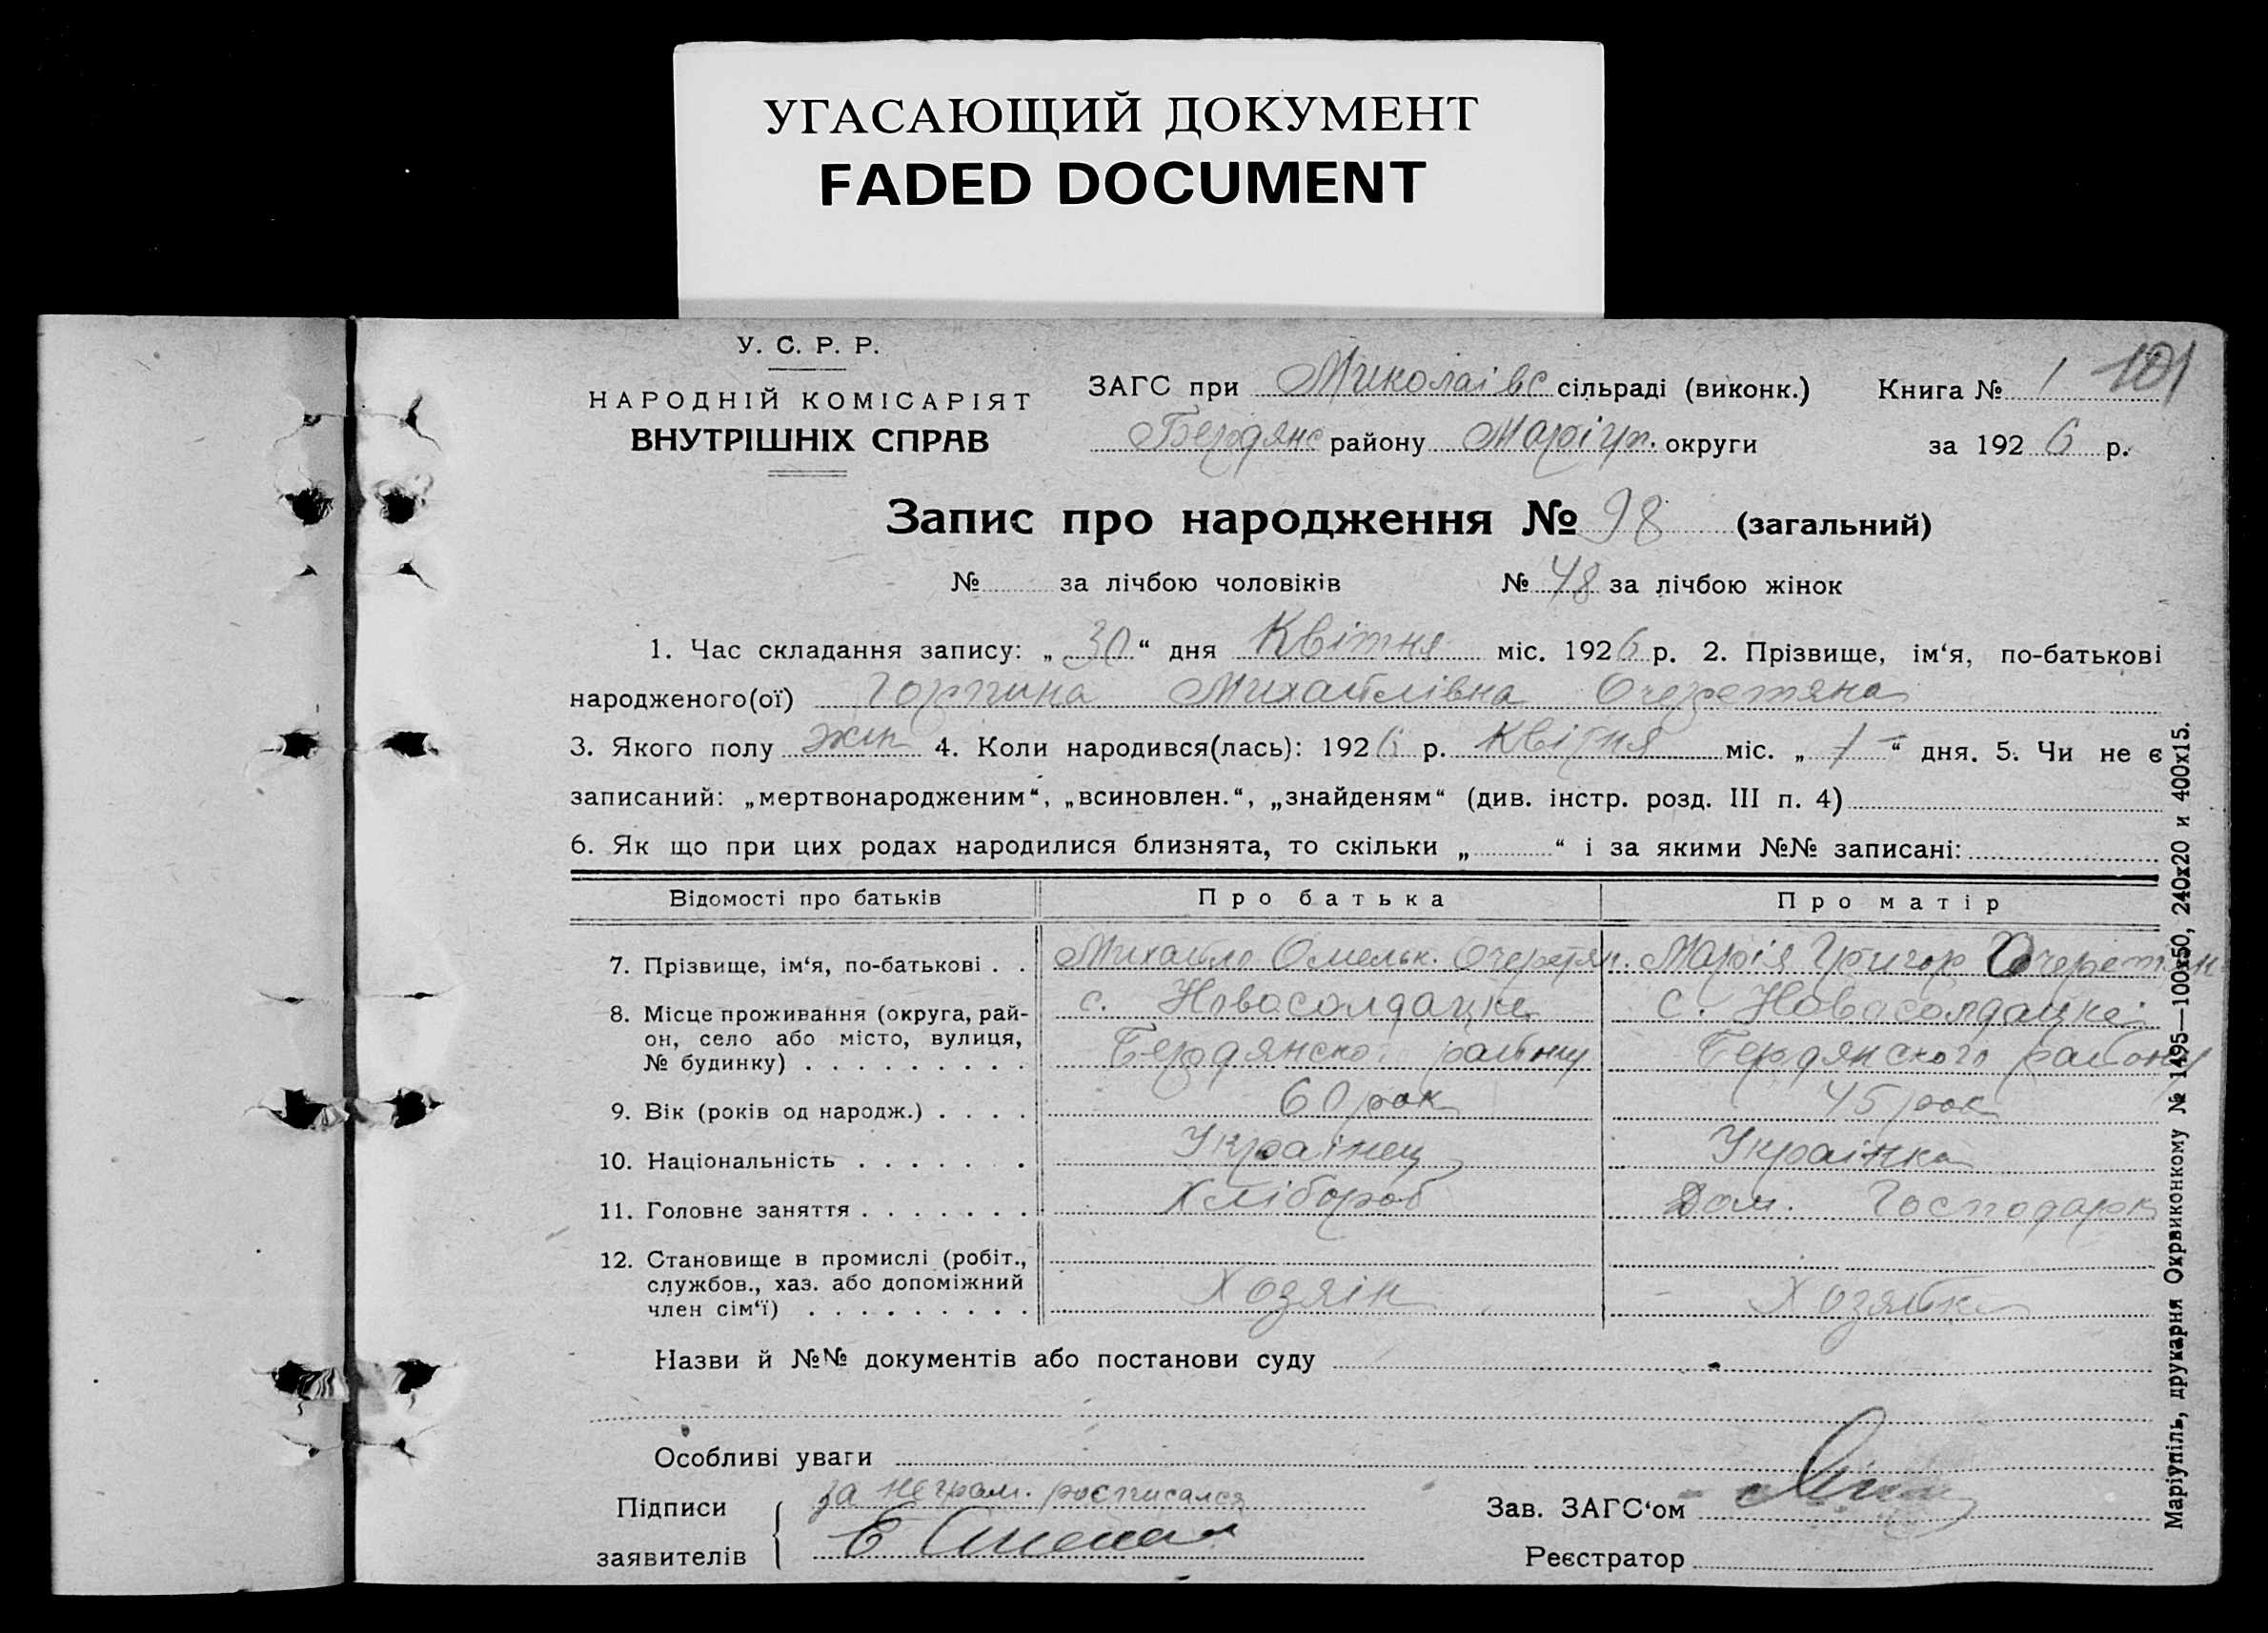 УГАСАЮЩИЙ ДОКУМЕНТ
FADED DOCUMENT
У. С. Р. Р.
НАРОДНІЙ КОМІСАРІЯТ
ВНУТРІШНІХ СПРАВ
ЗАГС при Миколаівс сільраді (виконк.) Книга № 1 101
Бердянс району Маріуп. округи за 1926 р.
Запис про народження № 98 (загальний)
№ за лічбою чоловіків № 48 за лічбою жінок
1. Час складання запису: „30“ дня Квітня міс. 1926 р. 2. Прізвище, ім‘я, по-батькові
народженого(ої) Горпина Михайлівна Очеретяна
3. Якого полу жін 4. Коли народився(лась): 1926 р. Квітня міс. „1“ дня. 5. Чи не є
записаний: „мертвонародженим“, „всиновлен.“, „знайденям“ (див. інстр. розд. III п. 4)
6. Як що при цих родах народилися близнята, то скільки „ “ і за якими №№ записані:
Відомості про батьків Про батька Про матір
7. Прізвище, ім‘я, по-батькові . . Михайло Омельк. Очеретян. Марія Григор Очеретян
8. Місце проживання (округа, рай-
он, село або місто, вулиця,
№ будинку) . . . . . . . . .
с. Новосолдацке
Бердянско району
С. Новосолдацке
Бердянского району
9. Вік (років од народж.) . . . . 60 рок 45 рок
10. Національність . . . . . . . Украінец Украінка
11. Головне заняття . . . . . . . Хлібороб Дом. Господарк
12. Становище в промислі (робіт.,
службов., хаз. або допоміжний
член сім‘ї) . . . . . . . . . Хозяін Хозяйка
Назви й №№ документів або постанови суду
Особливі уваги
Підписи
заявителів
за неграм. росписался
Зав. ЗАГС‘ом
Реєстратор
Маріупіль, друкарня Окрвиконкому № 1495—100х50, 240х20 и 400х15.